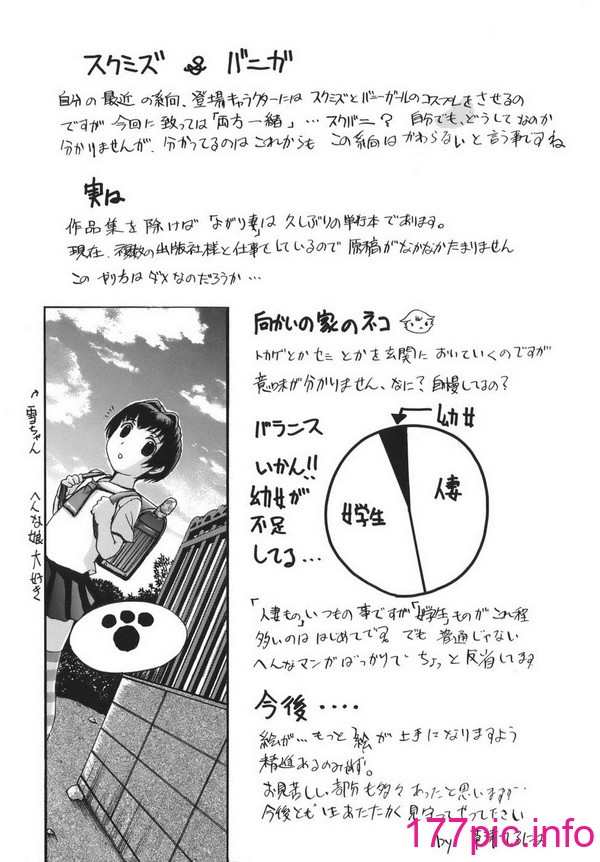 スクミズ & バニガ
自分の最近の傾向、登場キャラクターにはスクミズとバニーガールのコスプレをさせるの
ですが今回に致っては「両方一緒」…スクバニ? 自分でも、どうしてなのか
分かりませんが、分かってるのはこれからも この傾向はかわらないと言う事ですね
実は
作品集を除けば「よがり妻」は久しぶりの単行本であります。
現在、複数の出版社様と仕事をしているので 原稿がなかなかたまりません
この やり方はダメなのだろうか…
向かいの家のネコ
トカゲとか セミ とかを玄関に おいていくのですが
意味が分かりません、なに? 自慢してるの?
幼女
バランス
いかん!!
幼女が
不足
してる…
女学生
人妻
雪ちゃん
へんな娘 大好き
「人妻もの」いつもの事ですが「女学生」ものがこれ程
多いのは はじめてです。でも 普通じゃない
へんなマンガばっかりで ちょっと反省してます
今後‥‥
絵が…もっと「絵」が上手になりますよう
精進あるのみです。
お見苦しい部分も多々あったと思いますが…
今後とも、あたたかく見守ってやって下さい
by
177pic.info